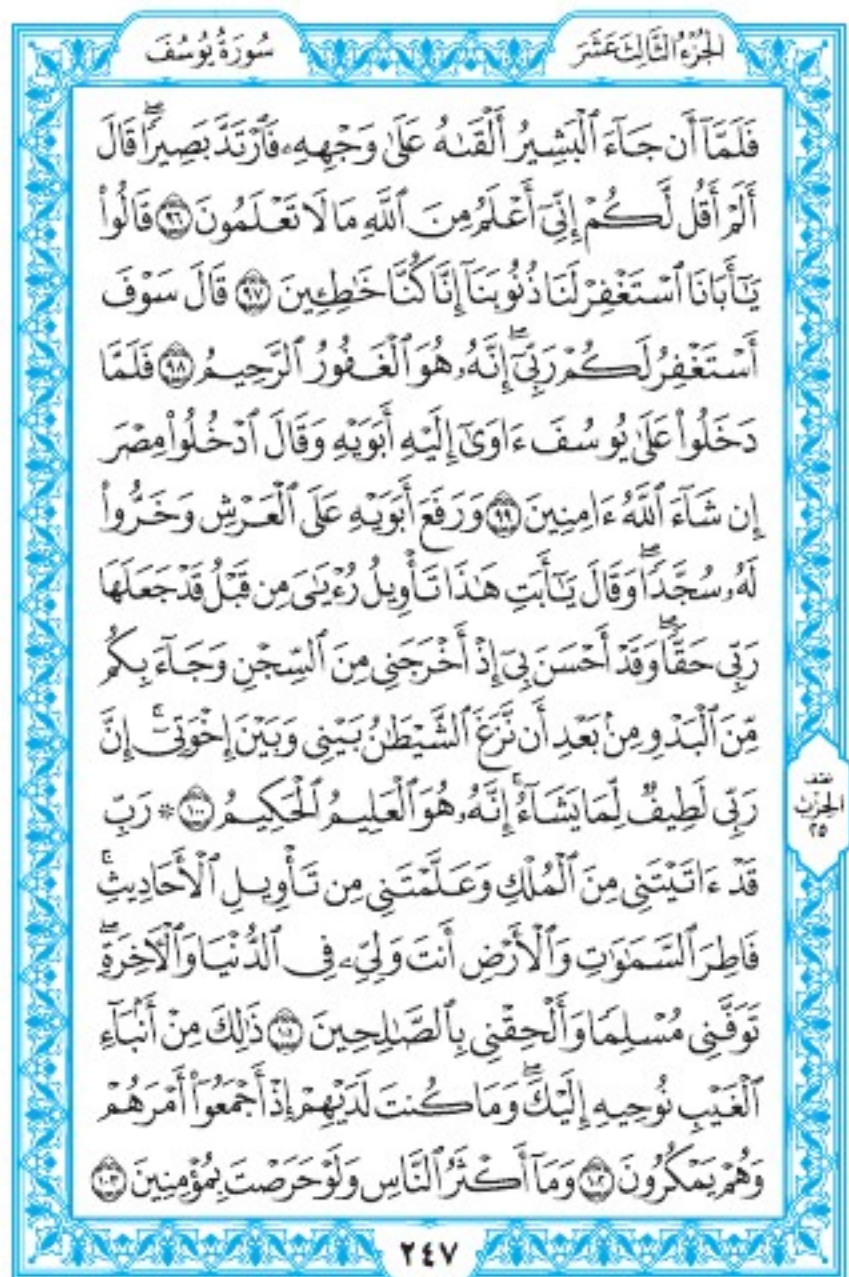 الجُزْءُ الثَّالِثَ عَشَرَ
سُورَةُ يُوسُفَ
فَلَمَّآ أَن جَآءَ ٱلْبَشِيرُ أَلْقَىٰهُ عَلَىٰ وَجْهِهِۦ فَٱرْتَدَّ بَصِيرًاۖ قَالَ
أَلَمْ أَقُل لَّكُمْ إِنِّىٓ أَعْلَمُ مِنَ ٱللَّهِ مَا لَا تَعْلَمُونَ ٩٦ قَالُوا۟
يَٰٓأَبَانَا ٱسْتَغْفِرْ لَنَا ذُنُوبَنَآ إِنَّا كُنَّا خَٰطِـِٔينَ ٩٧ قَالَ سَوْفَ
أَسْتَغْفِرُ لَكُمْ رَبِّىٓۖ إِنَّهُۥ هُوَ ٱلْغَفُورُ ٱلرَّحِيمُ ٩٨ فَلَمَّا
دَخَلُوا۟ عَلَىٰ يُوسُفَ ءَاوَىٰٓ إِلَيْهِ أَبَوَيْهِ وَقَالَ ٱدْخُلُوا۟ مِصْرَ
إِن شَآءَ ٱللَّهُ ءَامِنِينَ ٩٩ وَرَفَعَ أَبَوَيْهِ عَلَى ٱلْعَرْشِ وَخَرُّوا۟
لَهُۥ سُجَّدًاۖ وَقَالَ يَٰٓأَبَتِ هَٰذَا تَأْوِيلُ رُءْيَٰىَ مِن قَبْلُ قَدْ جَعَلَهَا
رَبِّى حَقًّاۖ وَقَدْ أَحْسَنَ بِىٓ إِذْ أَخْرَجَنِى مِنَ ٱلسِّجْنِ وَجَآءَ بِكُم
مِّنَ ٱلْبَدْوِ مِنۢ بَعْدِ أَن نَّزَغَ ٱلشَّيْطَٰنُ بَيْنِى وَبَيْنَ إِخْوَتِىٓۚ إِنَّ
رَبِّى لَطِيفٌ لِّمَا يَشَآءُۚ إِنَّهُۥ هُوَ ٱلْعَلِيمُ ٱلْحَكِيمُ ١٠٠ * رَبِّ
قَدْ ءَاتَيْتَنِى مِنَ ٱلْمُلْكِ وَعَلَّمْتَنِى مِن تَأْوِيلِ ٱلْأَحَادِيثِۚ
فَاطِرَ ٱلسَّمَٰوَٰتِ وَٱلْأَرْضِ أَنتَ وَلِىِّۦ فِى ٱلدُّنْيَا وَٱلْءَاخِرَةِۖ
تَوَفَّنِى مُسْلِمًا وَأَلْحِقْنِى بِٱلصَّٰلِحِينَ ١٠١ ذَٰلِكَ مِنْ أَنۢبَآءِ
ٱلْغَيْبِ نُوحِيهِ إِلَيْكَۖ وَمَا كُنتَ لَدَيْهِمْ إِذْ أَجْمَعُوٓا۟ أَمْرَهُمْ
وَهُمْ يَمْكُرُونَ ١٠٢ وَمَآ أَكْثَرُ ٱلنَّاسِ وَلَوْ حَرَصْتَ بِمُؤْمِنِينَ ١٠٣
نصف
الحزب
٢٥
٢٤٧